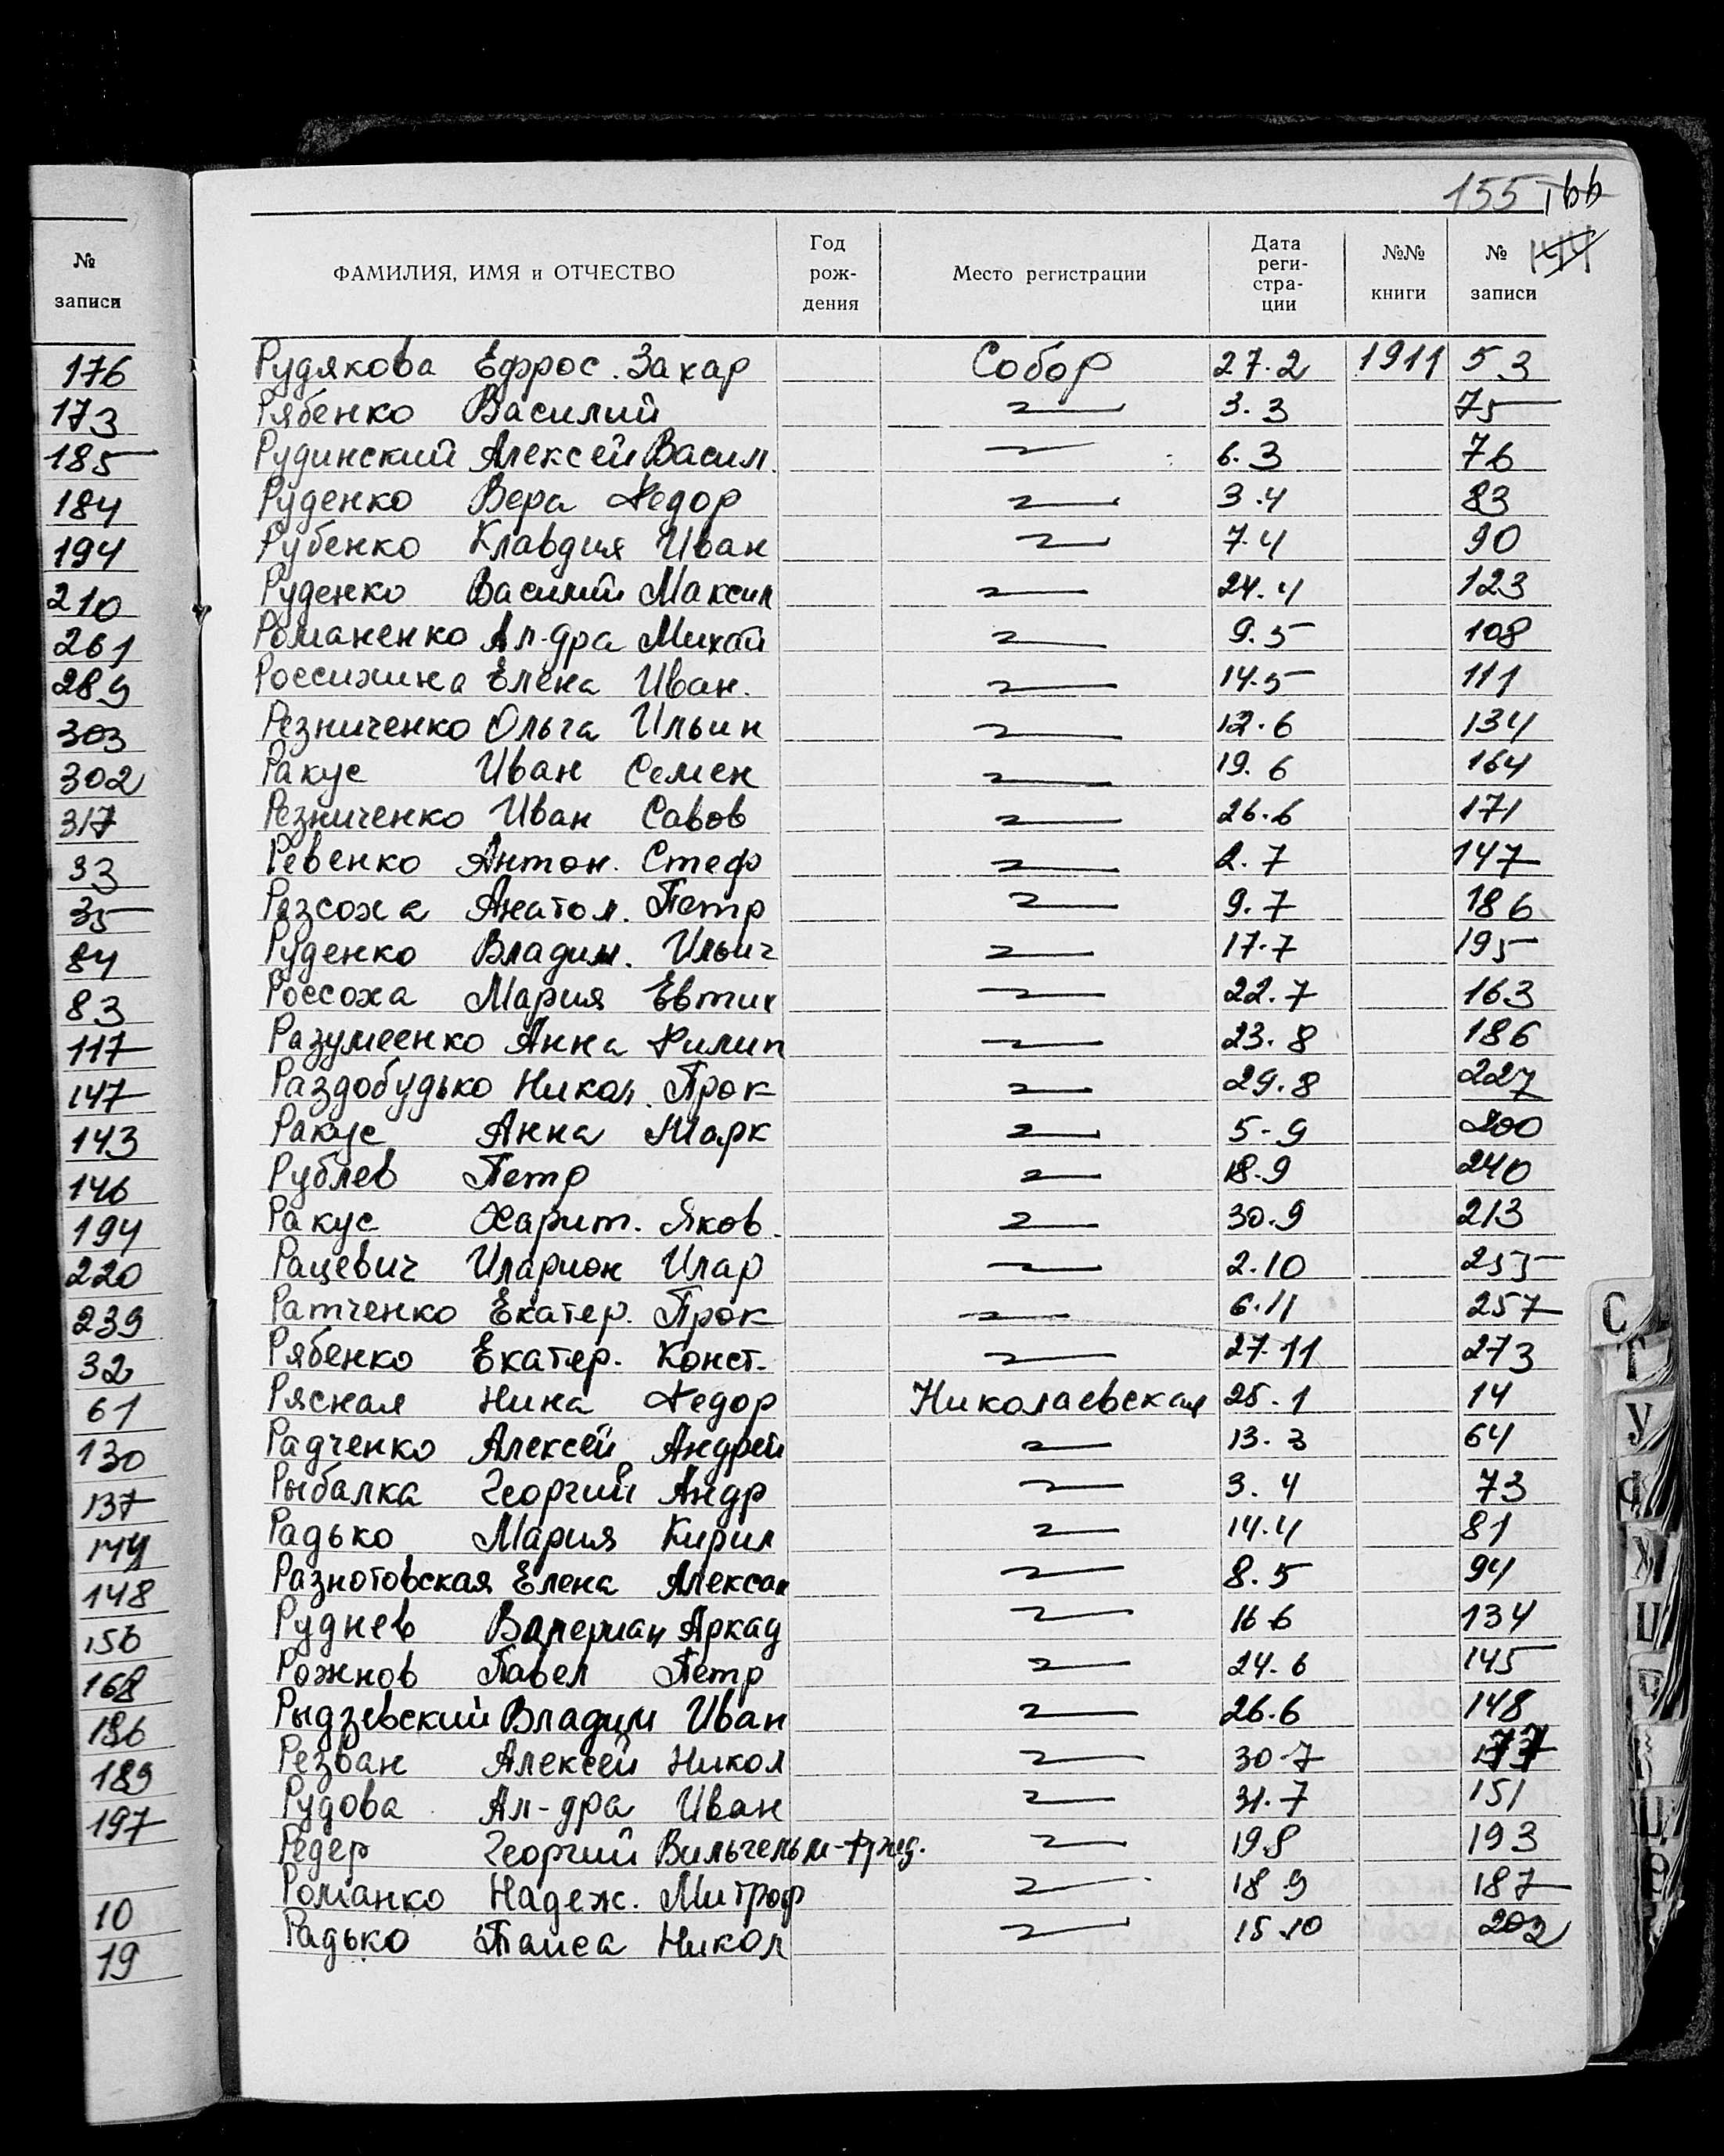 №
записи
176
173
185
184
194
210
261
289
303
302
317
33
35
84
83
117
147
143
146
194
220
239
32
61
130
137
144
148
156
168
186
189
197
10
19
155 166
144
ФАМИЛИЯ, ИМЯ и ОТЧЕСТВО Год рождения Место регистрации Дата реги-стра-ции №№ книги № записи
Рудякова Ефрос. Захар Собор 27.2 1911 53
Рябенко Василий 3.3 75
Рудинский Алексей Васил. 6.3 76
Руденко Вера Федор 3.4 83
Рубенко Клавдия Иван 7.4 90
Руденко Василий Максим 24.4 123
Романенко Ал-дра Михай 9.5 108
Россихина Елена Иван. 14.5 111
Резниченко Ольга Ильин 12.6 134
Ракус Иван Семен 19.6 164
Резниченко Иван Савов 26.6 171
Ревенко Антон. Стеф 2.7 147
Разсоха Анатол. Петр 9.7 186
Руденко Владим. Ильич 17.7 195
Россоха Мария Евтих 22.7 163
Разумеенко Анна Филип 23.8 186
Раздобудько Никол. Прок 29.8 227
Ракус Анна Марк 5.9 200
Рублев Петр 18.9 240
Ракус Харит. Яков. 30.9 213
Рацевич Иларион Илар 2.10 253
Ратченко Екатер. Прок 6.11 257
Рябенко Екатер. Конст. 27.11 273
Рясная Нина Федор Николаевская 25.1 14
Радченко Алексей Андрей 13.3 64
Рыбалка Георгий Андр 3.4 73
Радько Мария Кирил 14.4 81
Разнотовская Елена Алексан 8.5 94
Руднев Валериан Аркад 16 6 134
Рожнов Павел Петр 24.6 145
Рыдзевский Владим Иван 26.6 148
Резбан Алексей Никол 30.7
Рудова Ал-дра Иван 31.7 151
Редер Георгий Вильгельм-Фрид. 19.8 193
Романко Надеж. Митроф 18 9 187
Радько Таиса Никол 15.10 202
С
Т
У
Ф
Х
Ц